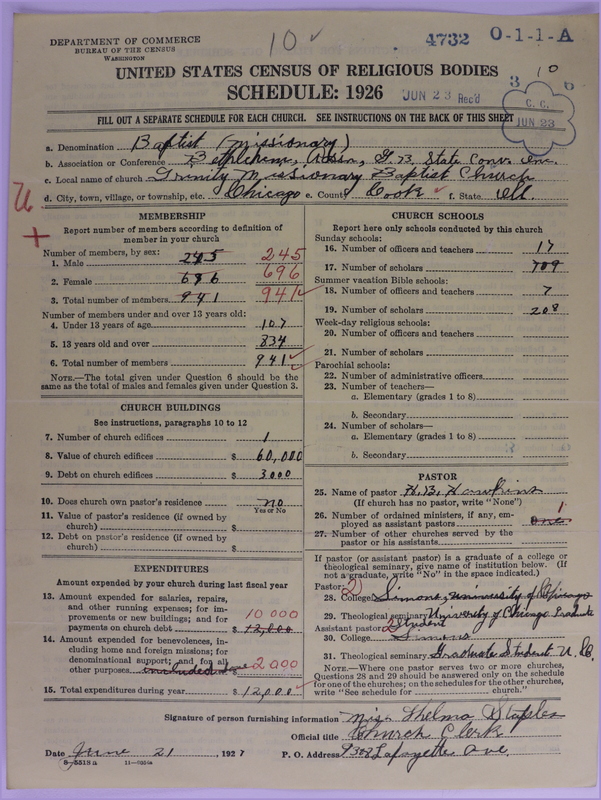 DEPARTMENT OF COMMERCE
BUREAU OF THE CENSUS
WASHINGTON
10 ✓
4732 O-1-1-A
UNITED STATES CENSUS OF RELIGIOUS BODIES
SCHEDULE: 1926
JUN 23 Rec'd
3 10 6
C. C.
JUN 23
FILL OUT A SEPARATE SCHEDULE FOR EACH CHURCH. SEE INSTRUCTIONS ON THE BACK OF THIS SHEET
a. Denomination Baptist (Missionary)
b. Association or Conference Bethlehem, Assn, G. B. State Conv. Inc.
c. Local name of church Trinity Missionary Baptist Church
d. City, town, village, or township, etc. Chicago e. County Cook ✓ f. State Ill.
U
+
MEMBERSHIP
Report number of members according to definition of
member in your church
Number of members, by sex:
1. Male 245 245
2. Female 686 696
3. Total number of members 941 941 ✓
Number of members under and over 13 years old:
4. Under 13 years of age 107
5. 13 years old and over 834
6. Total number of members 941 ✓
NOTE.—The total given under Question 6 should be the
same as the total of males and females given under Question 3.
CHURCH BUILDINGS
See instructions, paragraphs 10 to 12
7. Number of church edifices 1
8. Value of church edifices $ 60,000
9. Debt on church edifices $ 3000
10. Does church own pastor's residence no
Yes or No
11. Value of pastor's residence (if owned by
church) $
12. Debt on pastor's residence (if owned by
church) $
EXPENDITURES
Amount expended by your church during last fiscal year
13. Amount expended for salaries, repairs,
and other running expenses; for im-
provements or new buildings; and for
payments on church debt $ 12,000 10 000
14. Amount expended for benevolences, in-
cluding home and foreign missions; for
denominational support; and for all
other purposes included above 2 000
15. Total expenditures during year $ 12,000 ✓
CHURCH SCHOOLS
Report here only schools conducted by this church
Sunday schools:
16. Number of officers and teachers 17
17. Number of scholars 709
Summer vacation Bible schools:
18. Number of officers and teachers 7
19. Number of scholars 208
Week-day religious schools:
20. Number of officers and teachers
21. Number of scholars
Parochial schools:
22. Number of administrative officers
23. Number of teachers—
a. Elementary (grades 1 to 8)
b. Secondary
24. Number of scholars—
a. Elementary (grades 1 to 8)
b. Secondary
PASTOR
25. Name of pastor H. B. Hawkins
(If church has no pastor, write "None")
26. Number of ordained ministers, if any, em-
ployed as assistant pastors one 1
27. Number of other churches served by the
pastor or his assistants
If pastor (or assistant pastor) is a graduate of a college or
theological seminary, give name of institution below. (If
not a graduate, write "No" in the space indicated.)
Pastor: 2
28. College Simons, university of Chicago
29. Theological seminary University of Chicago Graduate
Assistant pastor: 2 Student
30. College Simons
31. Theological seminary Graduate Student U.
NOTE.—Where one pastor serves two or more churches,
Questions 28 and 29 should be answered only on the schedule
for one of the churches; on the schedules for the other churches,
write "See schedule for church."
Signature of person furnishing information Miss Thelma Staples
Official title Church Clerk
Date June 21 1927 P. O. Address 9308 Lafayette Ave.
8-5518 a 11-9354a